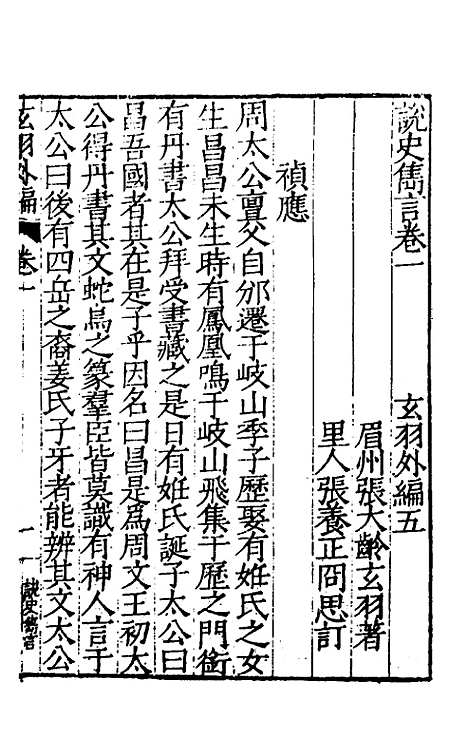 說史雋言卷一　玄羽外編五
眉州張大齡玄羽著
里人張養正冏思訂
禎應
周太公亶父自邠遷于岐山季子歷娶有姙氏之女
生昌昌未生時有鳳凰鳴于岐山飛集于歷之門銜
有丹書太公拜受書藏之是日有姙氏誕子太公曰
昌吾國者其在是子乎因名曰昌是爲周文王初太
公得丹書其文蛇鳥之篆羣臣皆莫識有神人言于
太公曰後有四岳之裔姜氏子牙者能辨其文太公
玄羽外編　卷一　一　說史雋言